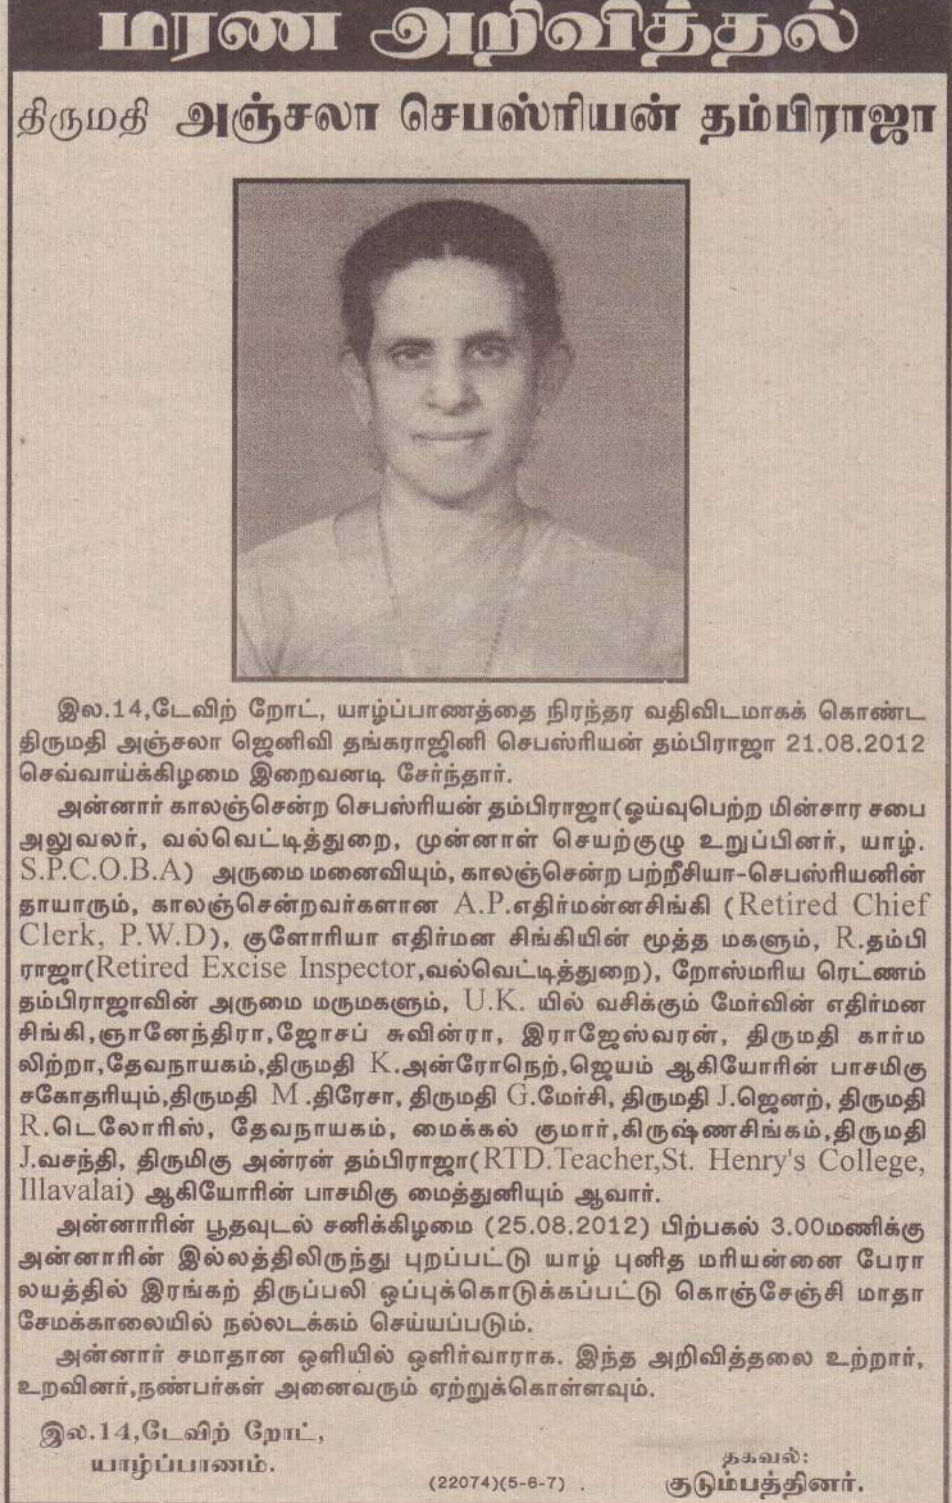 மரண அறிவித்தல்
திருமதி அஞ்சலா செபஸ்ரியன் தம்பிராஜா
இல.14,டேவிற் றோட், யாழ்ப்பாணத்தை நிரந்தர வதிவிடமாகக் கொண்ட
திருமதி அஞ்சலா ஜெனிவி தங்கராஜினி செபஸ்ரியன் தம்பிராஜா 21.08.2012
செவ்வாய்க்கிழமை இறைவனடி சேர்ந்தார்.
அன்னார் காலஞ்சென்ற செபஸ்ரியன் தம்பிராஜா(ஓய்வுபெற்ற மின்சார சபை
அலுவலர், வல்வெட்டித்துறை, முன்னாள் செயற்குழு உறுப்பினர், யாழ்.
S.P.C.O.B.A) அருமை மனைவியும், காலஞ்சென்ற பற்றீசியா-செபஸ்ரியனின்
தாயாரும், காலஞ்சென்றவர்களான A.P.எதிர்மன்னசிங்கி (Retired Chief
Clerk, P.W.D), குளோரியா எதிர்மன சிங்கியின் மூத்த மகளும், R.தம்பி
ராஜா(Retired Excise Inspector,வல்வெட்டித்துறை), றோஸ்மரிய ரெட்ணம்
தம்பிராஜாவின் அருமை மருமகளும், U.K. யில் வசிக்கும் மேர்வின் எதிர்மன
சிங்கி,ஞானேந்திரா,ஜோசப் சுவின்ரா, இராஜேஸ்வரன், திருமதி கார்ம
லிற்றா,தேவநாயகம்,திருமதி K.அன்ரோநெற்,ஜெயம் ஆகியோரின் பாசமிகு
சகோதரியும்,திருமதி M.திரேசா, திருமதி G.மேர்சி, திருமதி J.ஜெனற், திருமதி
R.டெலோரிஸ், தேவநாயகம், மைக்கல் குமார்,கிருஷ்ணசிங்கம்,திருமதி
J.வசந்தி, திருமிகு அன்ரன் தம்பிராஜா(RTD.Teacher,St. Henry's College,
Illavalai) ஆகியோரின் பாசமிகு மைத்துனியும் ஆவார்.
அன்னாரின் பூதவுடல் சனிக்கிழமை (25.08.2012) பிற்பகல் 3.00மணிக்கு
அன்னாரின் இல்லத்திலிருந்து புறப்பட்டு யாழ் புனித மரியன்னை பேரா
லயத்தில் இரங்கற் திருப்பலி ஒப்புக்கொடுக்கப்பட்டு கொஞ்சேஞ்சி மாதா
சேமக்காலையில் நல்லடக்கம் செய்யப்படும்.
அன்னார் சமாதான ஒளியில் ஒளிர்வாராக. இந்த அறிவித்தலை உற்றார்,
உறவினர்,நண்பர்கள் அனைவரும் ஏற்றுக்கொள்ளவும்.
இல.14,டேவிற் றோட்,
யாழ்ப்பாணம்.
தகவல்:
(22074)(5-6-7)
குடும்பத்தினர்.